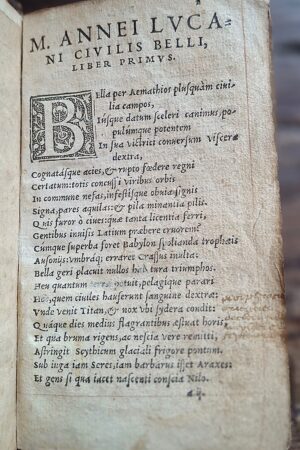 M. ANNEI LVCA-
NI CIVILIS BELLI,
LIBER PRIMVS.
BElla per Aemathios plusquàm ciui-
lia campos,
Iusque datum sceleri canimus, po-
pulumque potentem
In sua victrici conuersum viscera
dextra,
Cognatásque acies, & rupto fœdere regni
Certatum: totis concussi viribus orbis
In commune nefas, infestísque obuia signis
Signa, pares aquilas: & pila minantia pilis.
Quis furor ô ciues: quæ tanta licentia ferri,
Gentibus inuisis Latium præbere cruorem?
Cumque superba foret Babylon spolianda trophæis
Ausoniis: vmbráq; erraret Crassus inulta:
Bella geri placuit nullos habitura triumphos.
Heu quantum terræ potuit, pelagique parari
Hoc, quem ciuiles hauserunt sanguine dextræ:
Vnde venit Titan, & nox vbi sydera condit:
Quáque dies medius flagrantibus æstuat horis,
Et qua bruma rigens, ac nescia vere remitti,
Astringit Scythicum glaciali frigore pontum.
Sub iuga iam Seres, iam barbarus isset Araxes:
Et gens si qua iacet nascenti conscia Nilo.
a ij.